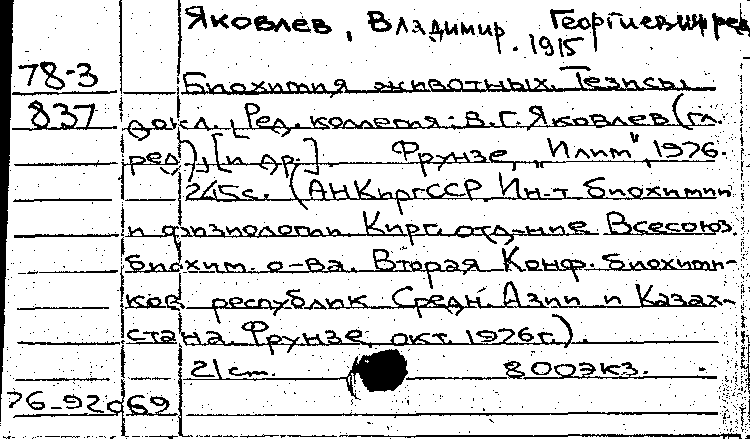 Яковлев, Владимир Георгиевич, ред.
. 1915
78-3
Биохимия животных. Тезисы
837
докл. Ред. коллегия: В.Г. Яковлев (гл.
ред.), [и др.]. Фрунзе, "Илим", 1976.
245с. (АН КиргССР. Ин-т биохимии
и физиологии. Кирг. отд-ние Всесоюз.
биохим. о-ва. Вторая Конф. биохими-
ков республик Средн. Азии и Казах-
стана. Фрунзе, окт. 1976г.).
21 cm. 800 экз.
76-92069